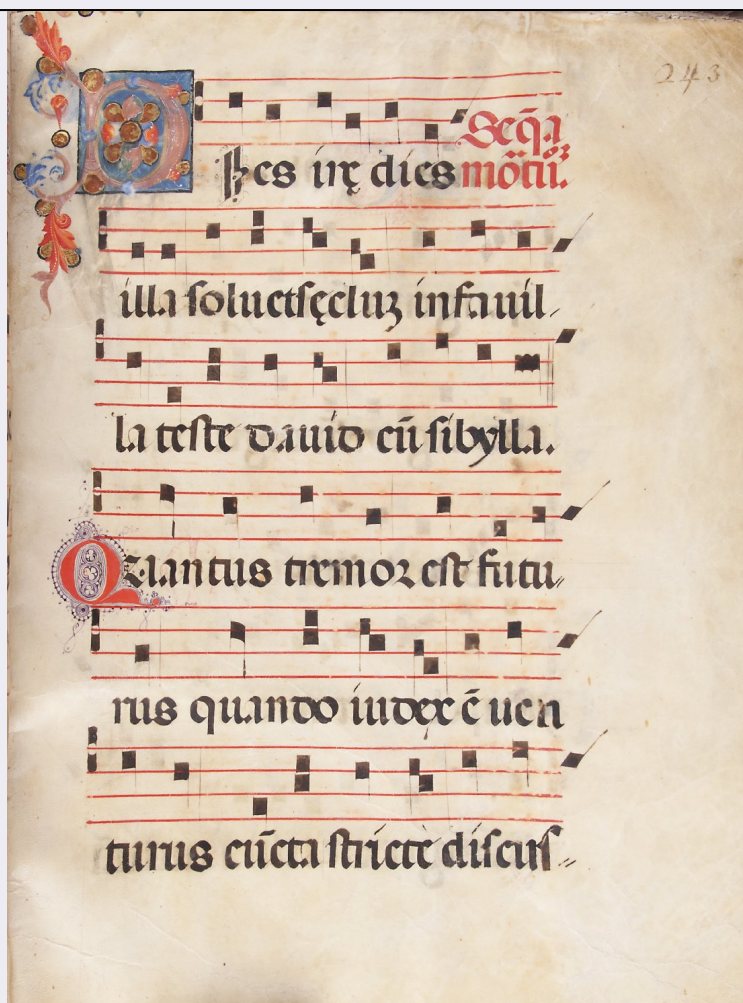 243
Seq̃a
DIes irę dies mortũ.
illa soluet sęcluʒ in fauil⸗
la teste dauid cũ sibylla.
Quantus tremor est futu⸗
rus quando iudex ẽ uen
turus cũcta stricte discus⸗